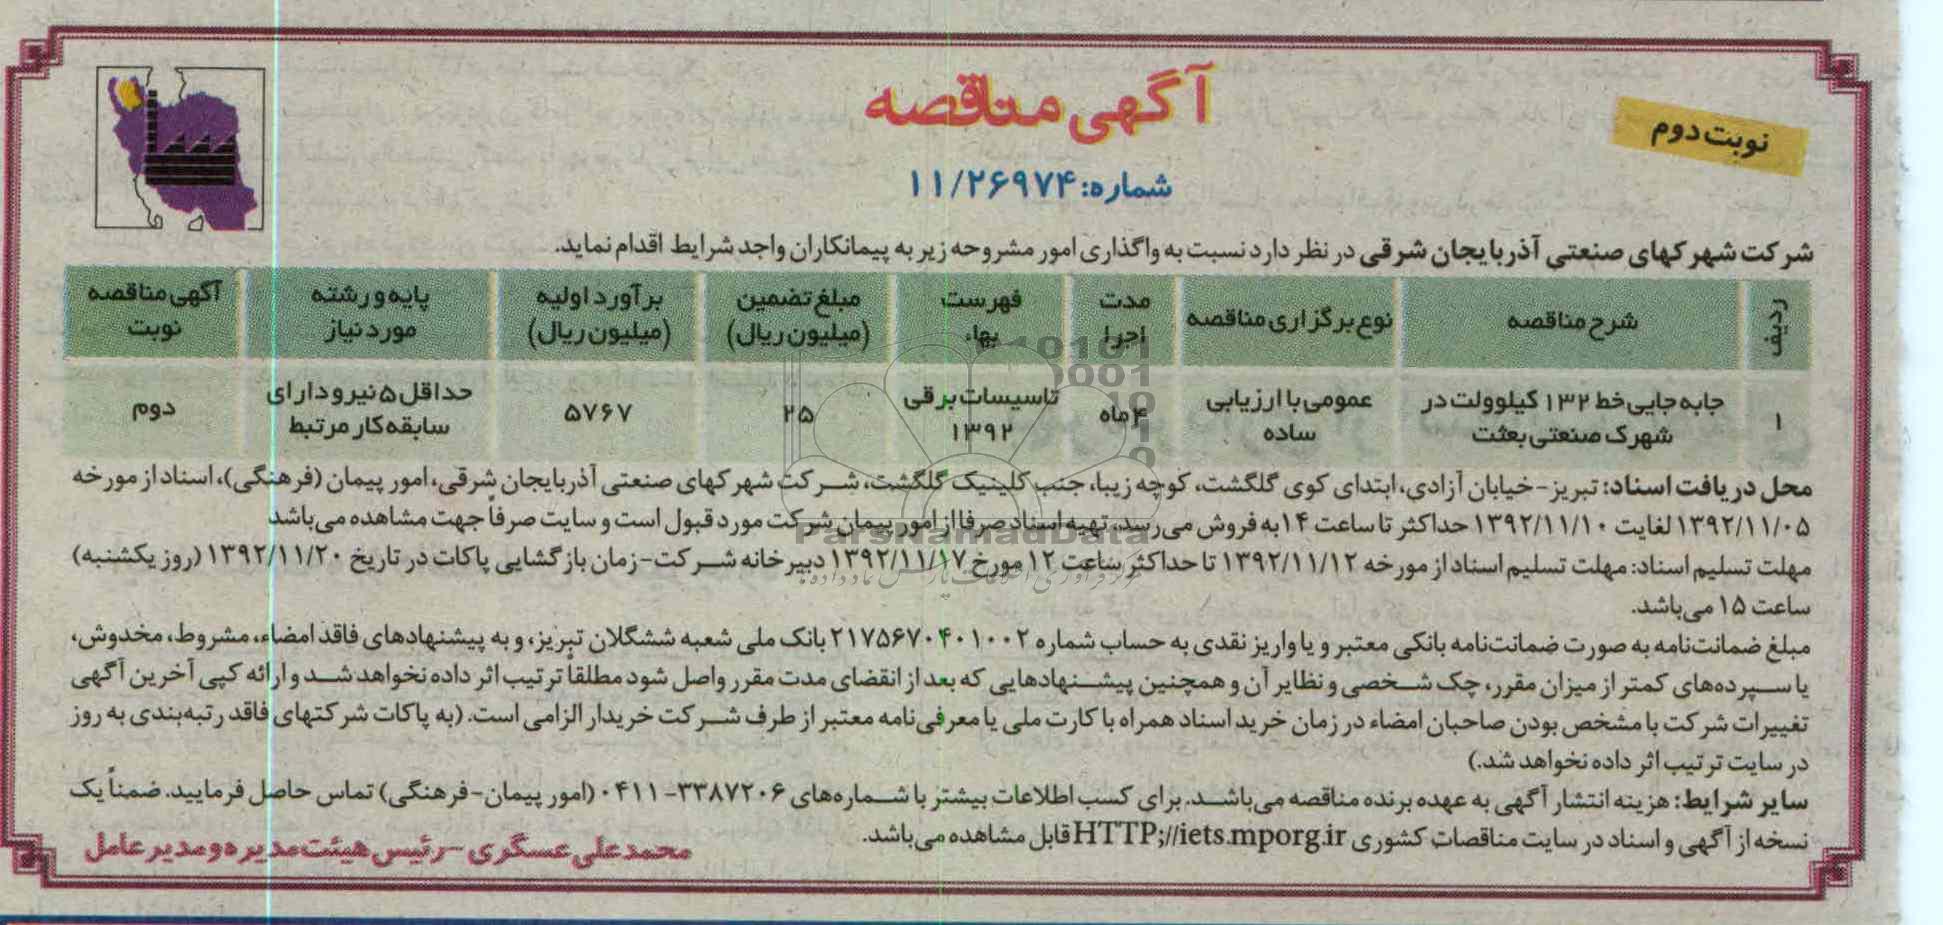 آگهی مناقصه
نوبت دوم
شماره: ۱۱/۲۶۹۷۴
شرکت شهرکهای صنعتی آذربایجان شرقی در نظر دارد نسبت به واگذاری امور مشروحه زیر به پیمانکاران واجد شرایط اقدام نماید.
ردیف شرح مناقصه نوع برگزاری مناقصه مدت اجرا فهرست بهاء مبلغ تضمین (میلیون ریال) برآورد اولیه (میلیون ریال) پایه و رشته مورد نیاز آگهی مناقصه نوبت
۱ جابه جایی خط ۱۳۲ کیلوولت در شهرک صنعتی بعثت عمومی با ارزیابی ساده ۴ ماه تاسیسات برقی ۱۳۹۲ ۲۵ ۵۷۶۷ حداقل ۵ نیرو دارای سابقه کار مرتبط دوم
محل دریافت اسناد: تبریز- خیابان آزادی، ابتدای کوی گلگشت، کوچه زیبا، جنب کلینیک گلگشت، شرکت شهرکهای صنعتی آذربایجان شرقی، امور پیمان (فرهنگی)، اسناد از مورخه
۱۳۹۲/۱۱/۰۵ لغایت ۱۳۹۲/۱۱/۱۰ حداکثر تا ساعت ۱۴ به فروش می‌رسد، تهیه اسناد صرفا از امور پیمان شرکت مورد قبول است و سایت صرفاً جهت مشاهده می‌باشد
مهلت تسلیم اسناد: مهلت تسلیم اسناد از مورخه ۱۳۹۲/۱۱/۱۲ تا حداکثر ساعت ۱۲ مورخ ۱۳۹۲/۱۱/۱۷ دبیرخانه شرکت- زمان بازگشایی پاکات در تاریخ ۱۳۹۲/۱۱/۲۰ (روز یکشنبه)
ساعت ۱۵ می‌باشد.
مبلغ ضمانت‌نامه به صورت ضمانت‌نامه بانکی معتبر و یا واریز نقدی به حساب شماره ۲۱۷۵۶۷۰۴۰۱۰۰۲ بانک ملی شعبه ششگلان تبریز، و به پیشنهادهای فاقد امضاء، مشروط، مخدوش،
یا سپرده‌های کمتر از میزان مقرر، چک شخصی و نظایر آن و همچنین پیشنهادهایی که بعد از انقضای مدت مقرر واصل شود مطلقاً ترتیب اثر داده نخواهد شد و ارائه کپی آخرین آگهی
تغییرات شرکت با مشخص بودن صاحبان امضاء در زمان خرید اسناد همراه با کارت ملی یا معرفی‌نامه معتبر از طرف شرکت خریدار الزامی است. (به پاکات شرکتهای فاقد رتبه‌بندی به روز
در سایت ترتیب اثر داده نخواهد شد.)
سایر شرایط: هزینه انتشار آگهی به عهده برنده مناقصه می‌باشد. برای کسب اطلاعات بیشتر با شماره‌های ۳۳۸۷۲۰۶-۰۴۱۱ (امور پیمان- فرهنگی) تماس حاصل فرمایید. ضمناً یک
نسخه از آگهی و اسناد در سایت مناقصات کشوری HTTP;//iets.mporg.ir قابل مشاهده می‌باشد.
محمدعلی عسگری - رئیس هیئت مدیره و مدیرعامل
ParsNamadData